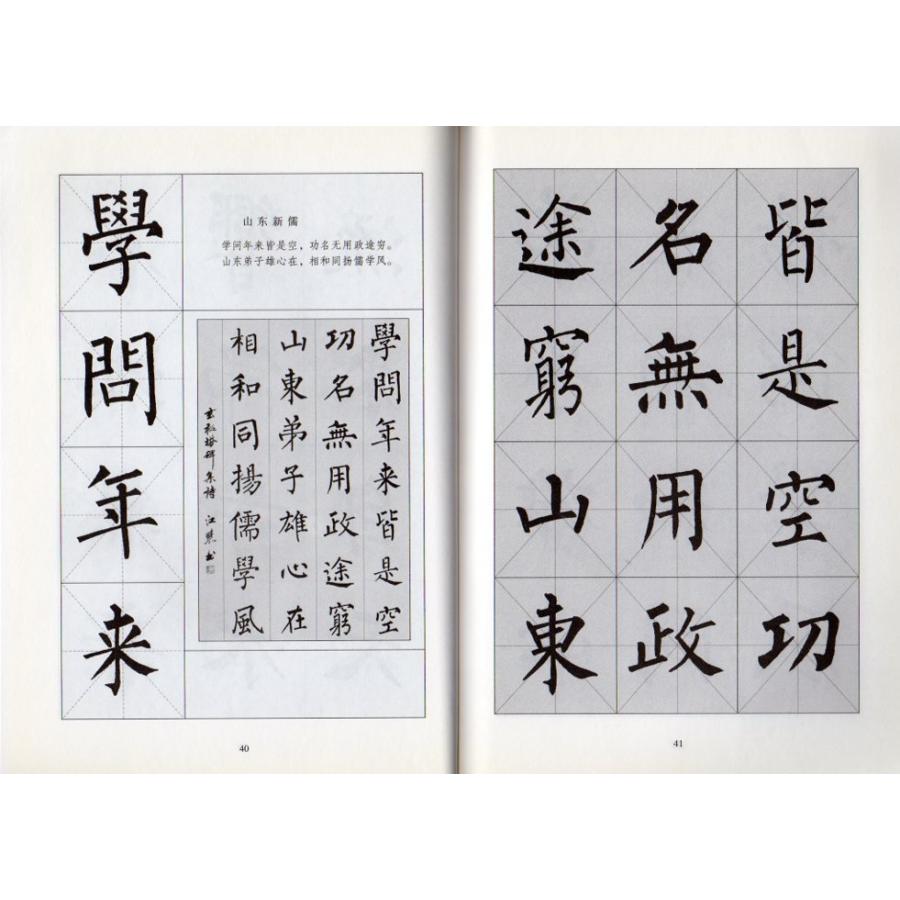 學
問
年
来
山东新儒
学问年来皆是空，功名无用政途穷。
山东弟子雄心在，相和同扬儒学风。
學問年来皆是空
功名無用政途窮
山東弟子雄心在
相和同揚儒學風
玄秘塔碑集詩 江慧书
40
皆是空功
名無用政
途窮山東
41